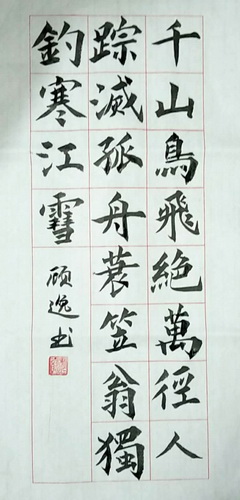 千山鳥飛絶萬徑人
踪滅孤舟蓑笠翁獨
釣寒江雪
顾逸书